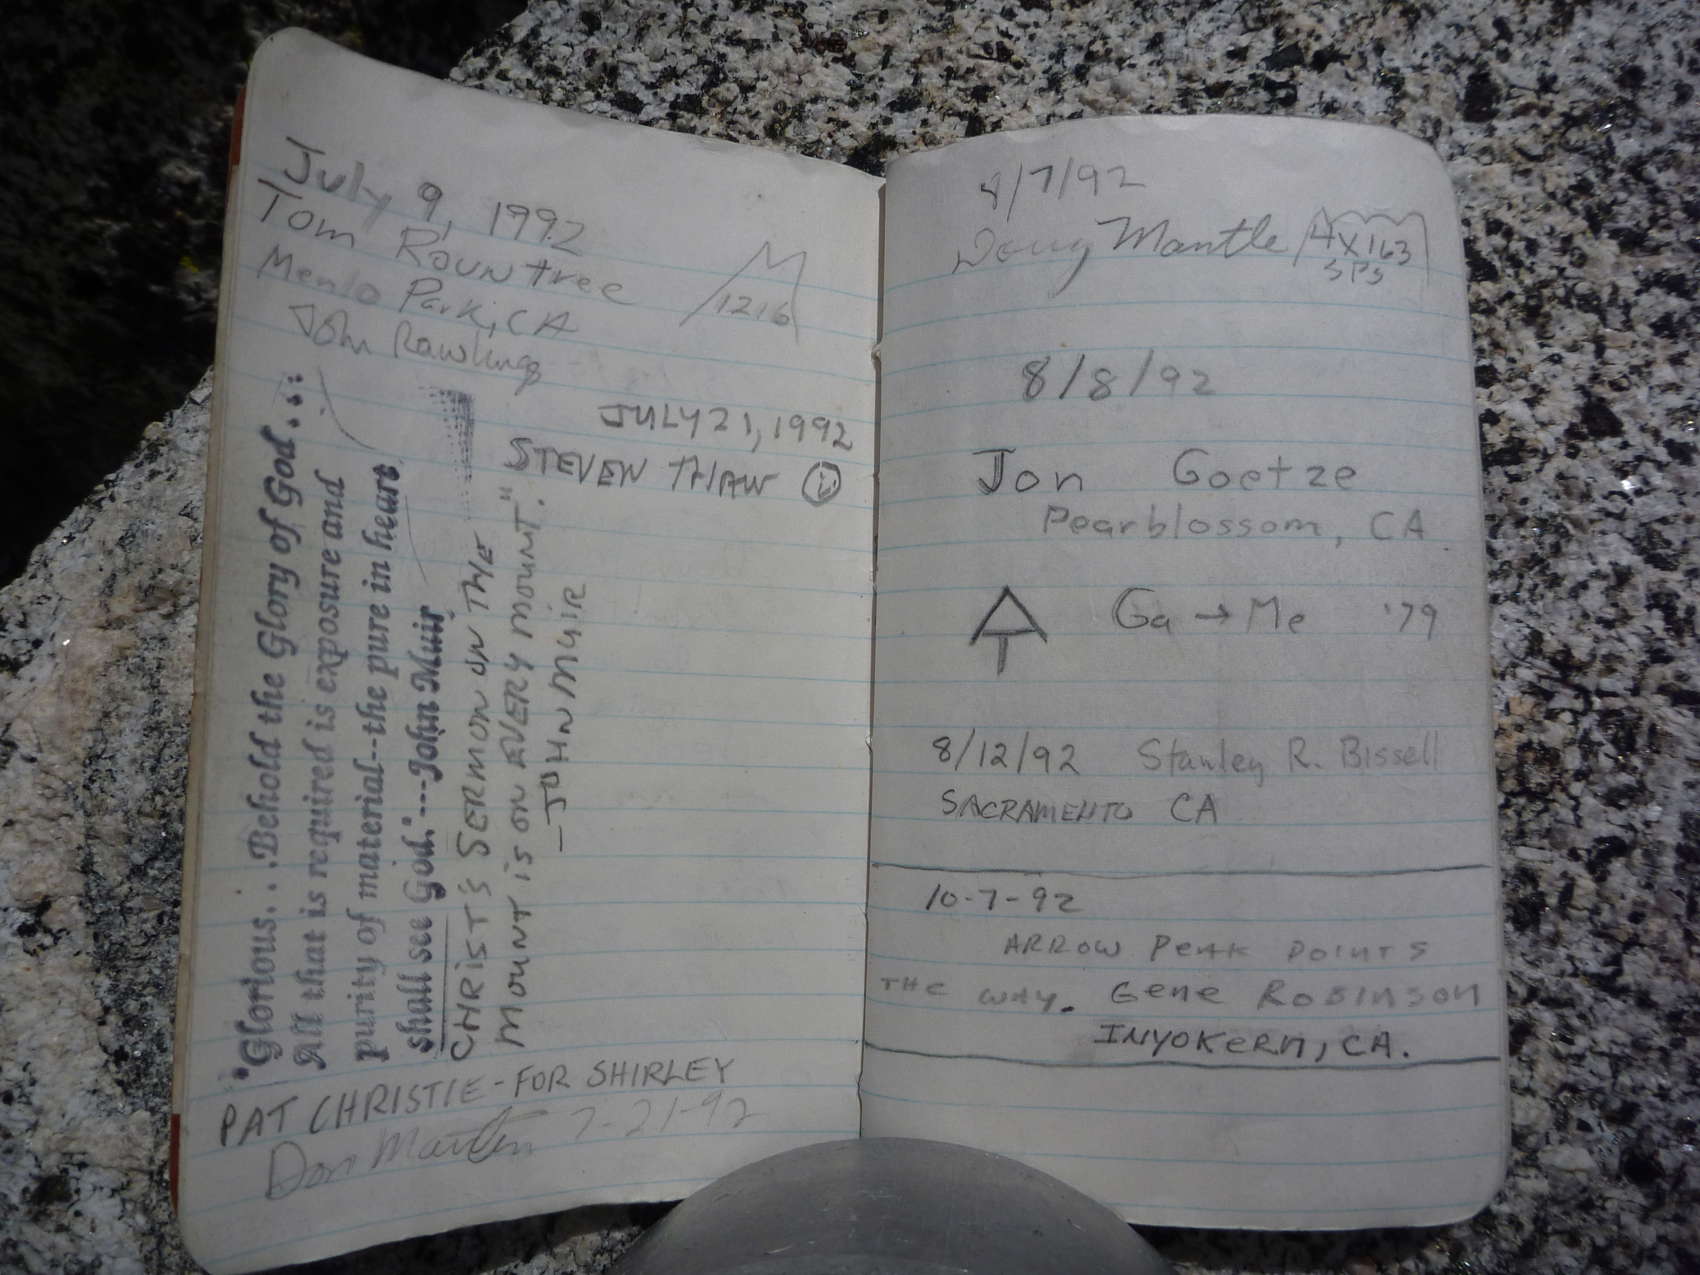 July 9, 1992
Tom Rountree
Menlo Park, CA
John Rawlings
1216
JULY 21, 1992
STEVEN THAW
"Glorious... Behold the Glory of God...
All that is required is exposure and
purity of material--the pure in heart
shall see God."---John Muir
CHRIST'S SERMON ON THE
MOUNT IS ON EVERY MOUNT."
—JOHN MUIR
PAT CHRISTIE - FOR SHIRLEY
Don Martin 7-21-92
8/7/92
Doug Mantle 4X163
SPS
8/8/92
Jon Goetze
Pearblossom, CA
Ga → Me '79
8/12/92 Stanley R. Bissell
SACRAMENTO CA
10-7-92
ARROW PEAK POINTS
THE WAY. GENE ROBINSON
INYOKERN, CA.